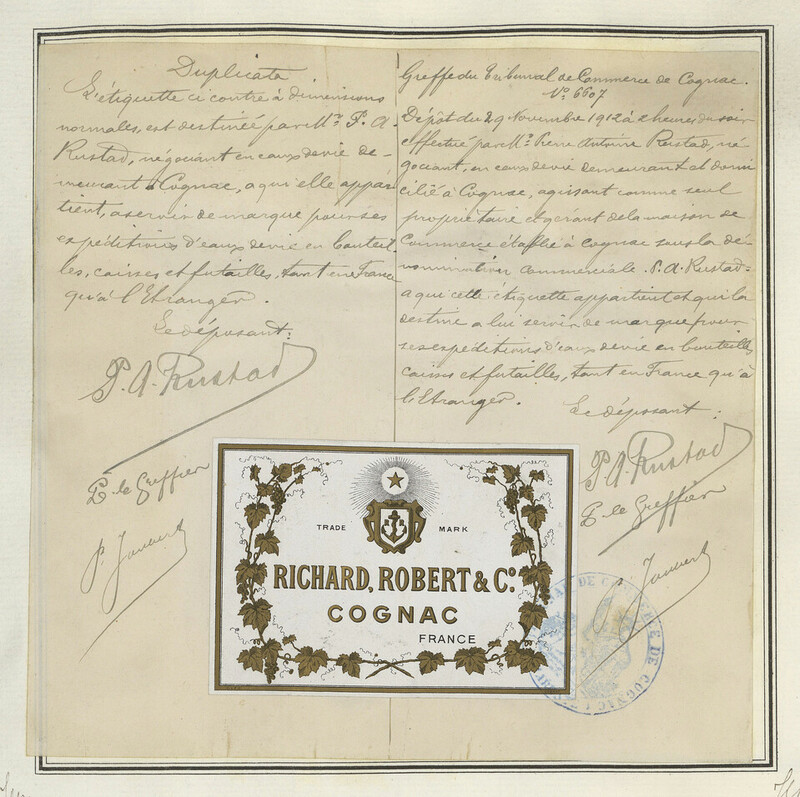 Duplicata
L'étiquette ci contre à dimensions
normales, est destinée par Mr. P. A.
Rustad, négociant en eaux de vie de-
meurant à Cognac, a qui elle appar-
tient, a servir de marque pour ses
expéditions d'eaux de vie en bouteil
les, caisses et futailles, tant en France
qu'à l'Etranger.
Le déposant:
P. A. Rustad
P. le Greffier
Greffe du Tribunal de Commerce de Cognac.
No. 6607
Dépôt du 29 Novembre 1912 à 2 heures du soir
effectué par Mr. Pierre Antoine Rustad, né
gociant, en eaux de vie demeurant et domi
cilié à Cognac, agissant comme seul
propriétaire et gérant de la maison de
Commerce établie à Cognac sous la dé-
nomination commerciale. P. A. Rustad-
a qui cette étiquette appartient et qui la
destine a lui servir de marque pour
ses expéditions d'eaux de vie en bouteilles
caisses et futailles, tant en France qu'à
l'Etranger.
Le déposant:
P. A. Rustad
P. le Greffier
TRADE MARK
RICHARD, ROBERT & Co.
COGNAC
FRANCE
DE COMMERCE DE COGNAC